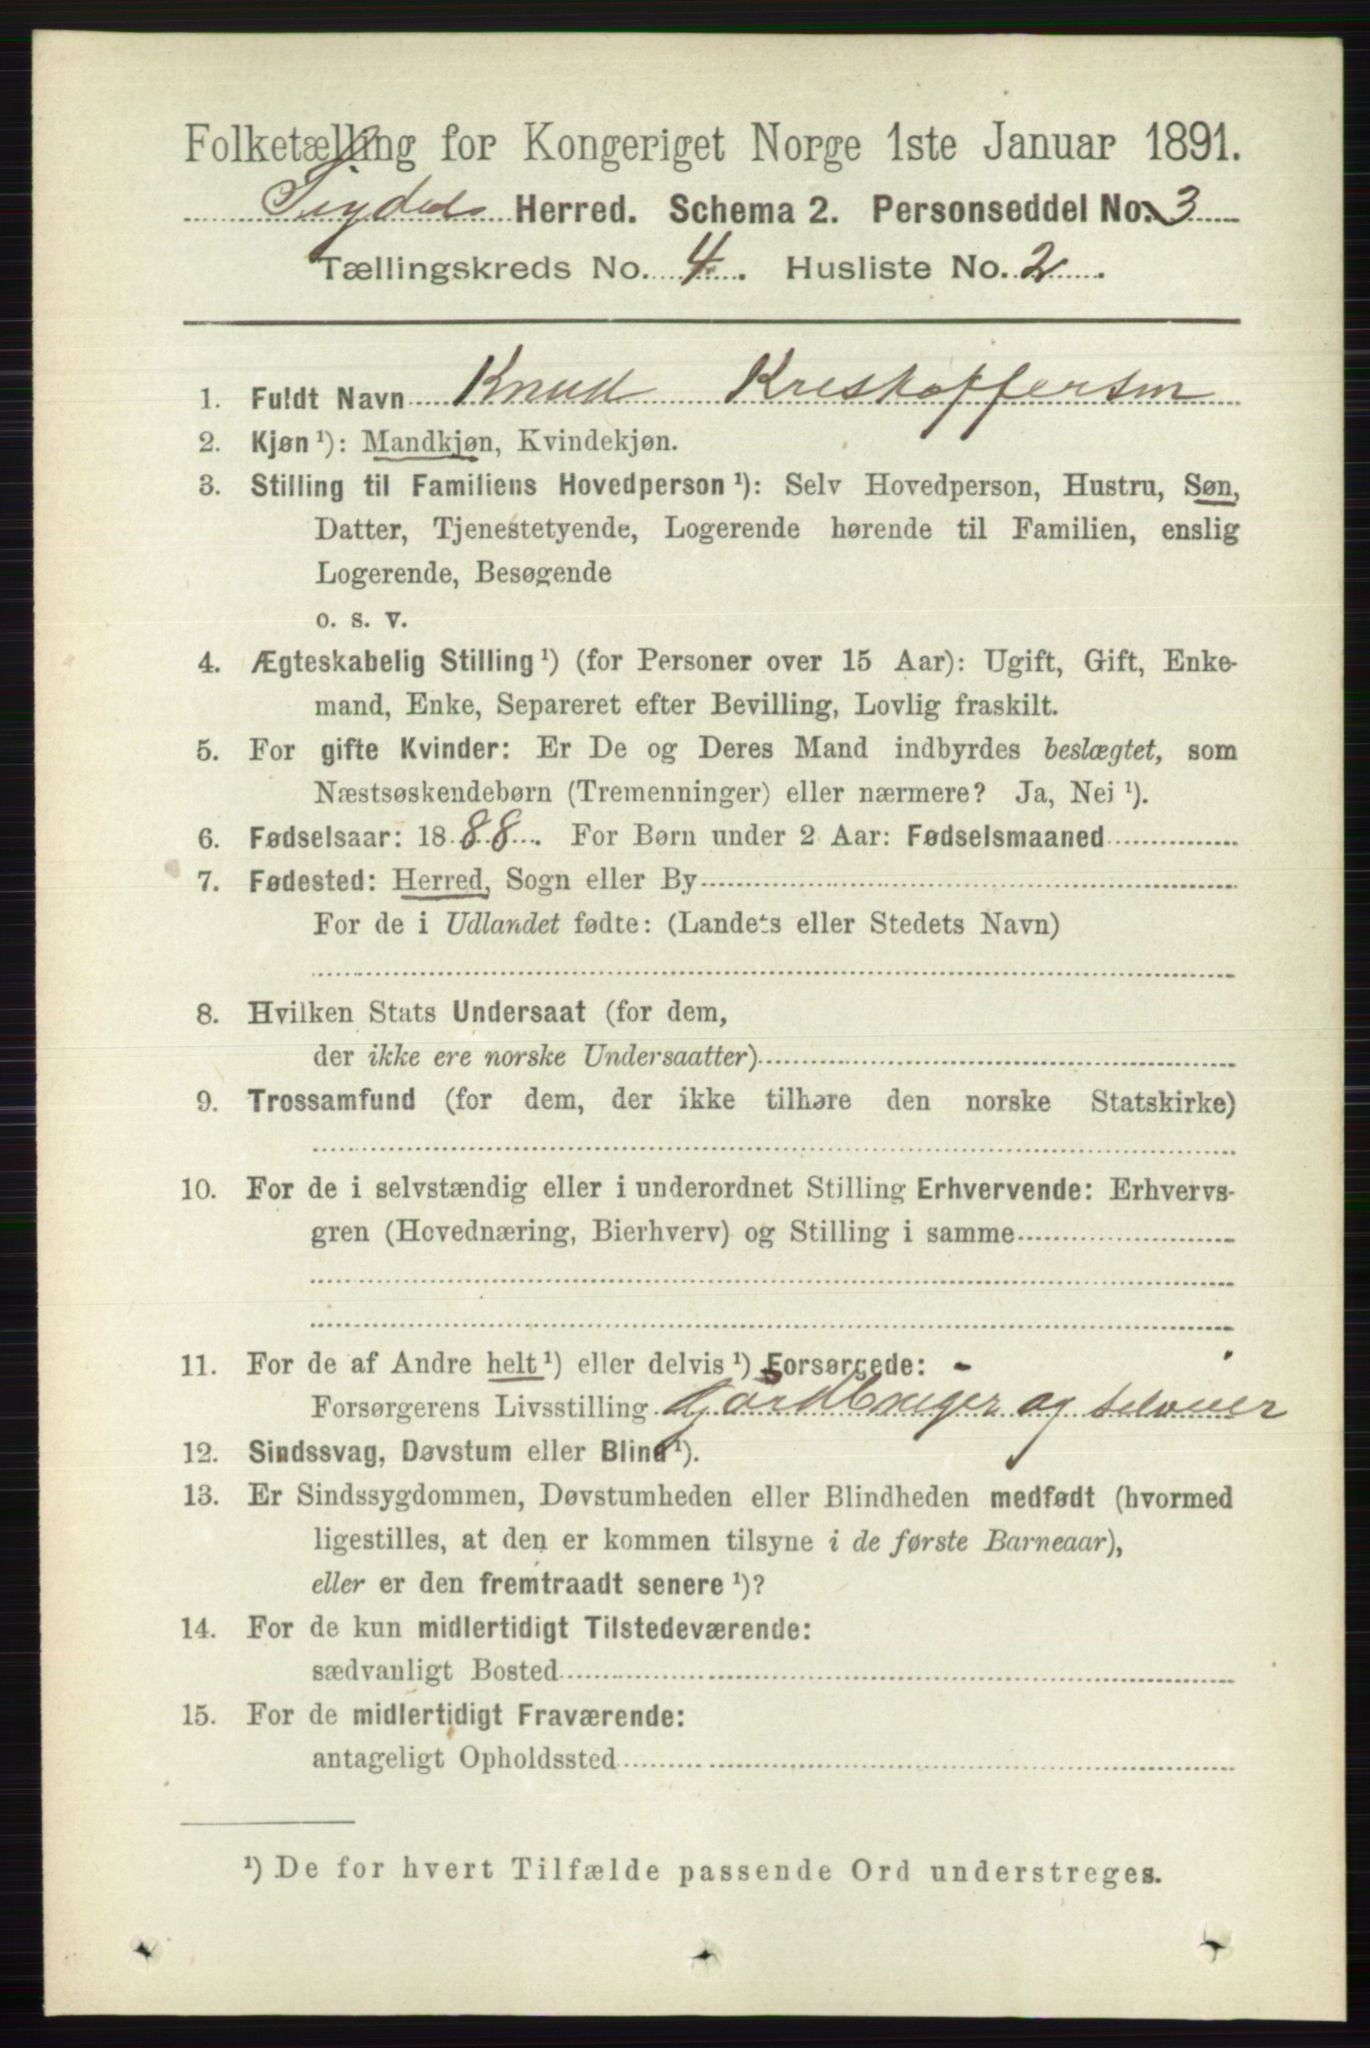 Folketælling for Kongeriget Norge 1ste Januar 1891.
Herred. Schema 2. Personseddel No. 3
Tællingskreds No. 4. Husliste No. 2.
1. Fuldt Navn Knud Kreskoffersen
2. Kjøn ¹): Mandkjøn, Kvindekjøn.
3. Stilling til Familiens Hovedperson ¹): Selv Hovedperson, Hustru, Søn,
Datter, Tjenestetyende, Logerende hørende til Familien, enslig
Logerende, Besøgende
o. s. v.
4. Ægteskabelig Stilling ¹) (for Personer over 15 Aar): Ugift, Gift, Enke-
mand, Enke, Separeret efter Bevilling, Lovlig fraskilt.
5. For gifte Kvinder: Er De og Deres Mand indbyrdes beslægtet, som
Næstsøskendebørn (Tremenninger) eller nærmere? Ja, Nei ¹).
6. Fødselsaar: 1888. For Børn under 2 Aar: Fødselsmaaned
7. Fødested: Herred, Sogn eller By
For de i Udlandet fødte: (Landets eller Stedets Navn)
8. Hvilken Stats Undersaat (for dem,
der ikke ere norske Undersaatter)
9. Trossamfund (for dem, der ikke tilhøre den norske Statskirke)
10. For de i selvstændig eller i underordnet Stilling Erhvervende: Erhvervs-
gren (Hovednæring, Bierhverv) og Stilling i samme
11. For de af Andre helt ¹) eller delvis ¹) Forsørgede: -
Forsørgerens Livsstilling Gårdbruger og selveier
12. Sindssvag, Døvstum eller Blind ¹).
13. Er Sindssygdommen, Døvstumheden eller Blindheden medfødt (hvormed
ligestilles, at den er kommen tilsyne i de første Barneaar),
eller er den fremtraadt senere ¹)?
14. For de kun midlertidigt Tilstedeværende:
sædvanligt Bosted
15. For de midlertidigt Fraværende:
antageligt Opholdssted
¹) De for hvert Tilfælde passende Ord understreges.